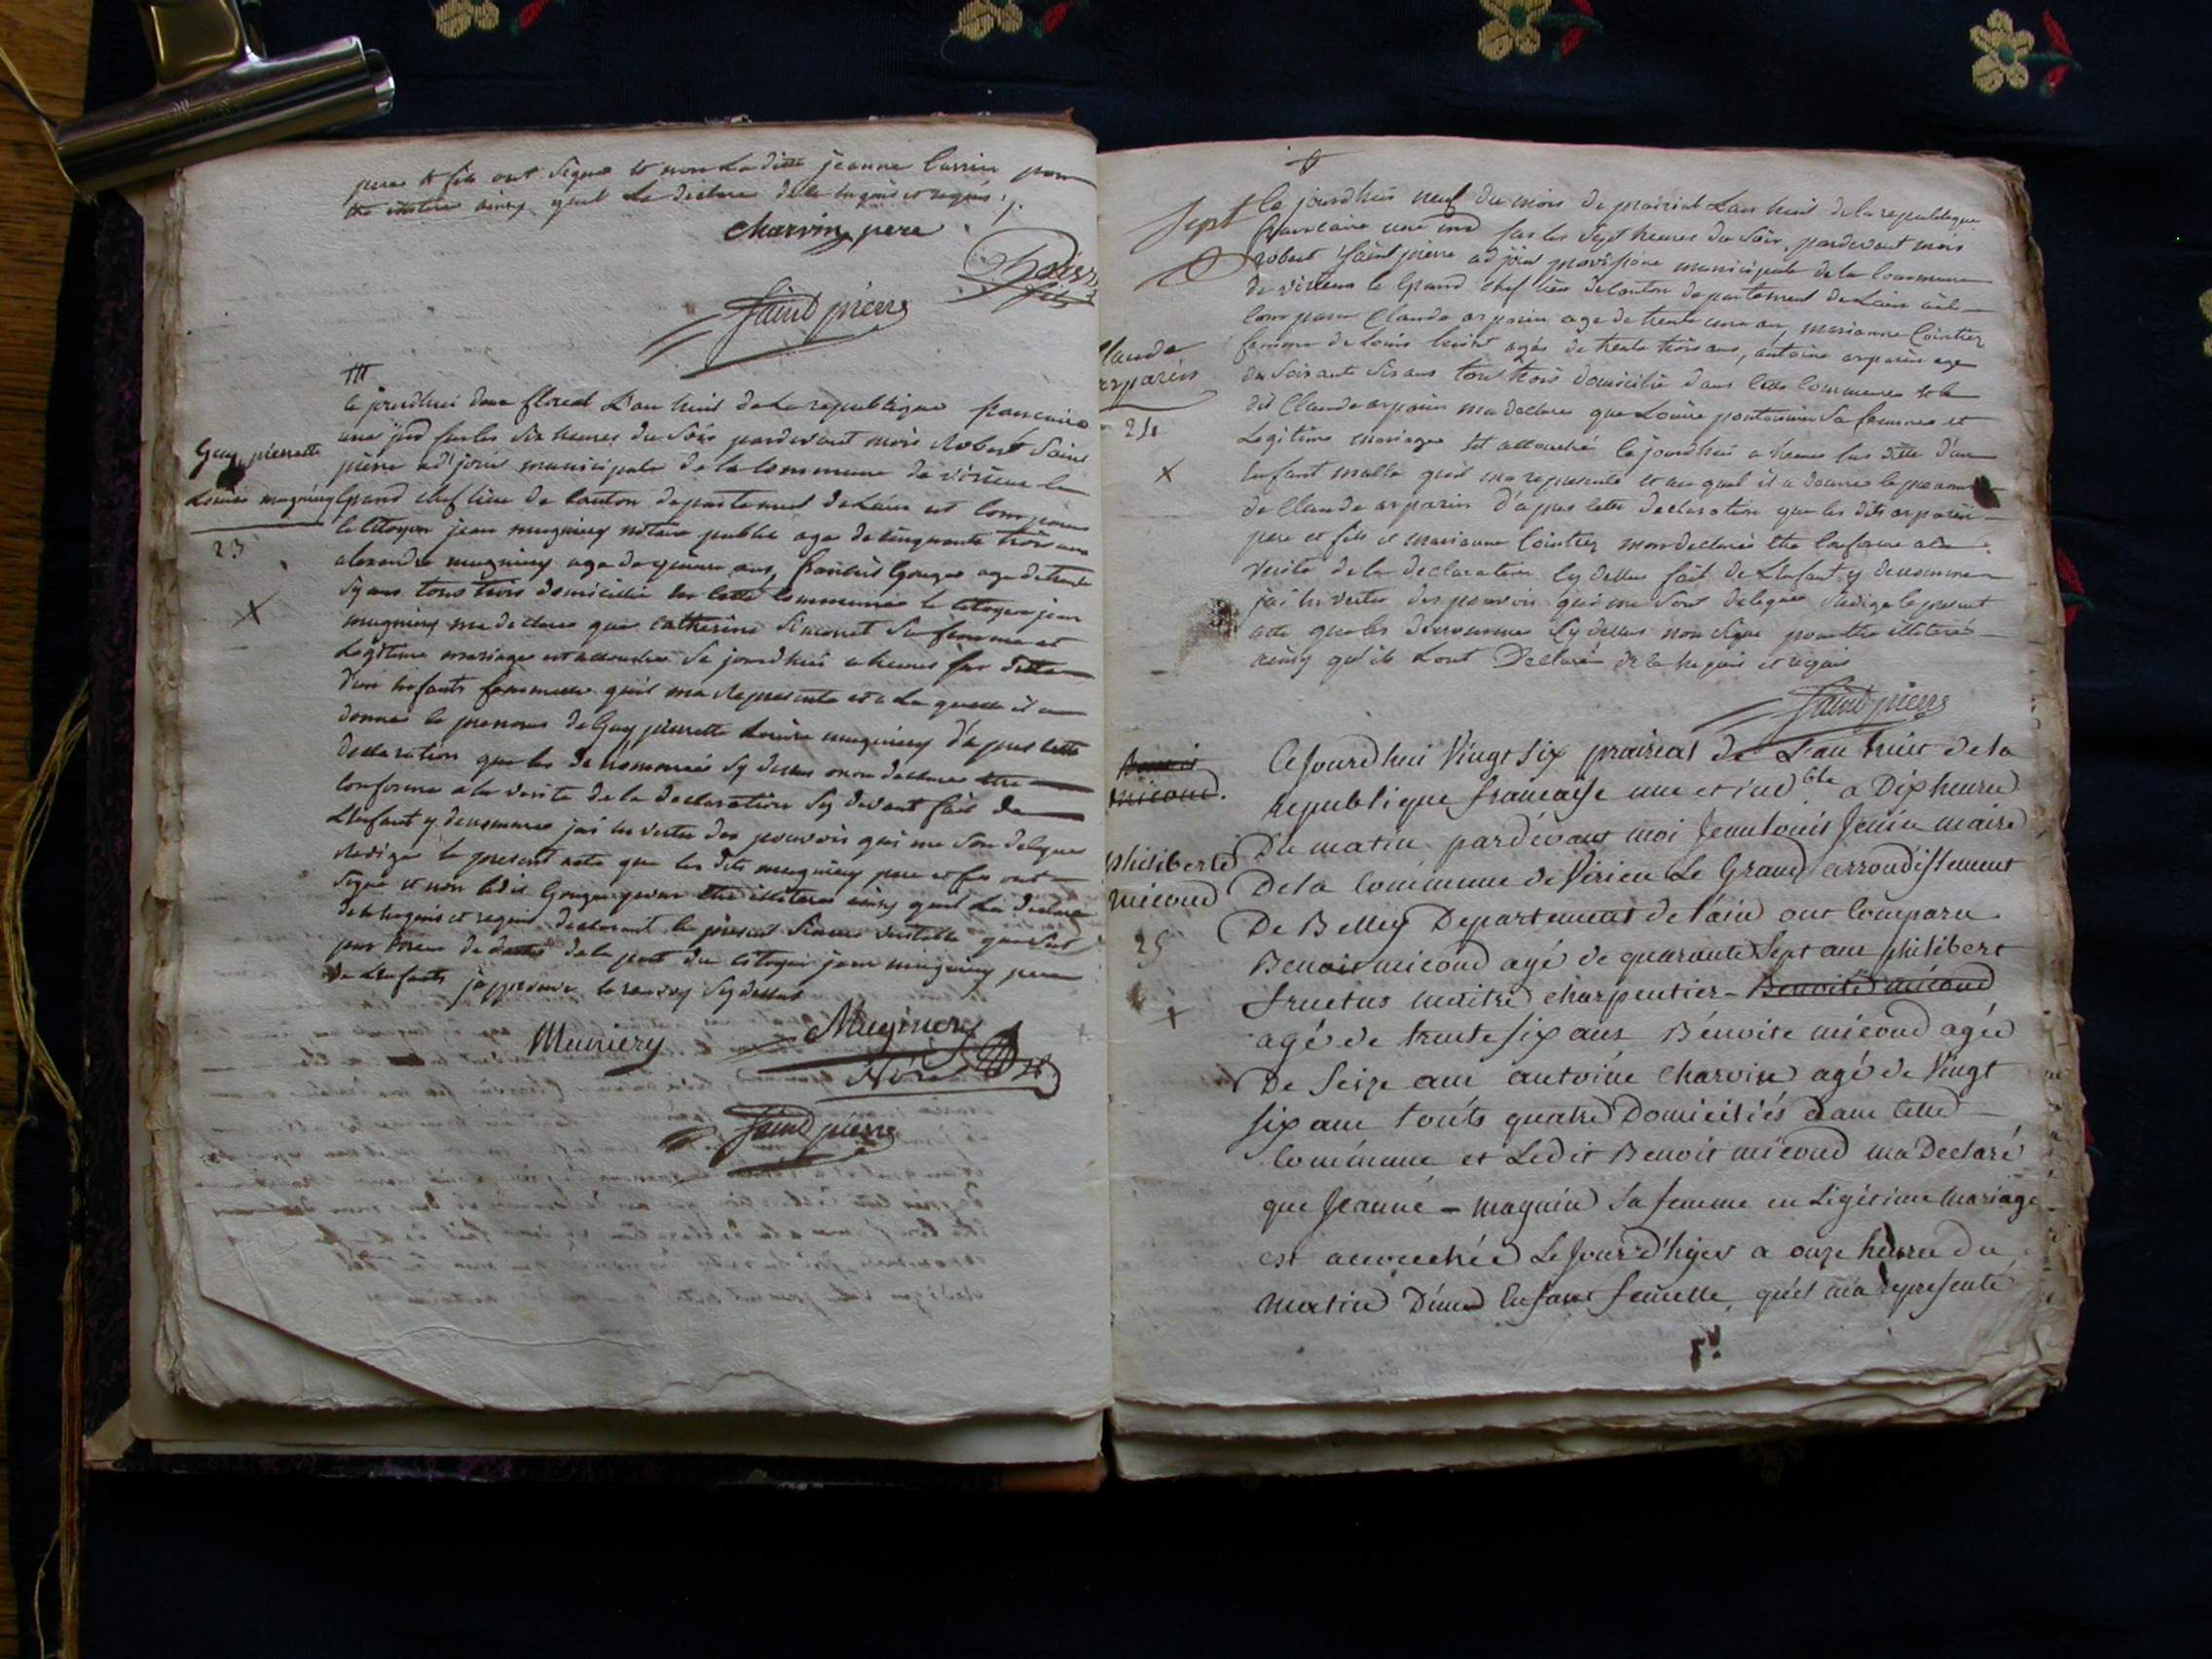 pere et fils ont signes et non la ditte jeanne pour
être ainsy quel la declarer de le enquis et requis ;.
charvin pere
fils
Saint pierre
ce jourdhui douze floreal L'an huit de la republique francaise
une ind sur les six heures du soir pardevant mois Robert Saint
pierre adjoint municipale de la Commune de virieu le
Grand chef lieu de canton departement de Lain est comparu
le Citoyen jean mugniery notaire public age de cinquante trois ans
alexandre mugniery age de quinze ans, francois Gouget age de trente
six ans tous trois domicilie en cette commune le citoyen jean
mugniery ma declare que Catherine Simonet sa femme en
Legitime mariage est accouchee ce jourdhui a heures sus ditte
d'un enfants femmelle quil ma Represente et a La quelle il a
donner le prenoms de Guy pierrette Louise mugniery d'apres cette
declaration que les denommées cy dessus mon declarer être
conforme a la verite de la declaration cy devant fait de
L'enfant y denommes jai en vertu des pouvoirs qui me son delegue
Redige le present acte que les dits mugniery pere et fils ont
signé et non ledit Gouget pour être illiteres ainsy quel La declare
de le enquis et requis declarant le present
de la part du citoyen jean mugniery pere
de L'enfants japprouve le renvoy cy dessus
Guy pierrette
Louise mugniery
23
X
Muniery
Mugniery
Nore
Saint pierre
Sept
Ce jourdhui neuf du mois de prairial Lan huit de la republique
francaise une ind sur les Sept heures du Soir, pardevant mois
robert Saint pierre adjoint provisoire municipale de la Commune
de virieu le Grand chef lieu de Canton departement de Lain ont
comparu Claude arparin age de trente un an, marianne Cointier
femme de Louis agée de trente trois ans, antoine arparin age
de Soixante Six ans tous trois domicilie dans cette Commune et le
dit Claude arparin ma declare que Louise sa femme en
Legitime mariage est accouché ce jourdhui a heures sus ditte d'un
enfant malle quil ma represente et au quel il a donner le prenom
de Claude arparin d'apres cette declaration que les dits arparin
pere et fils et marianne Cointier mon declarés être Conforme a la
verite de la declaration Cy dessus fait de L'enfant y denommer
jai en vertu des pouvoirs qui me sont delegués Redige le present
acte que les denommes Cy dessus non signe pour être illiteres
ainsy qu'ils L'ont Declaré de le enquis et requis
Claude
arparin
24
X
Saint pierre
Cejourdhui Vingt six prairial de L'an huit de la
republique francaise une et ind ble a Dix heures
Du matin pardevant moi Jean Louis Jenin maire
De la Commune de Virieu Le Grand arrondissement
De Belley Departement de l'ain ont Comparu
Benoit micoud agé de quarante Sept ans philibert
fructus maitre charpentier - Benoite micoud
agé de trente six ans Bénoite micoud agée
De Seize ans antoine Charvin agé de Vingt
six ans touts quatre Domiciliés dans Cette
Commune et Ledit Benoit micoud ma Declaré
que Jeanne - magnin Sa femme en Légitime Mariage
est accouchée Le jour d'hyer a onze heures du
Matin D'une Enfant femelle, qu'il m'a representé
Benoit
micoud.
philiberte
micoud
25
X